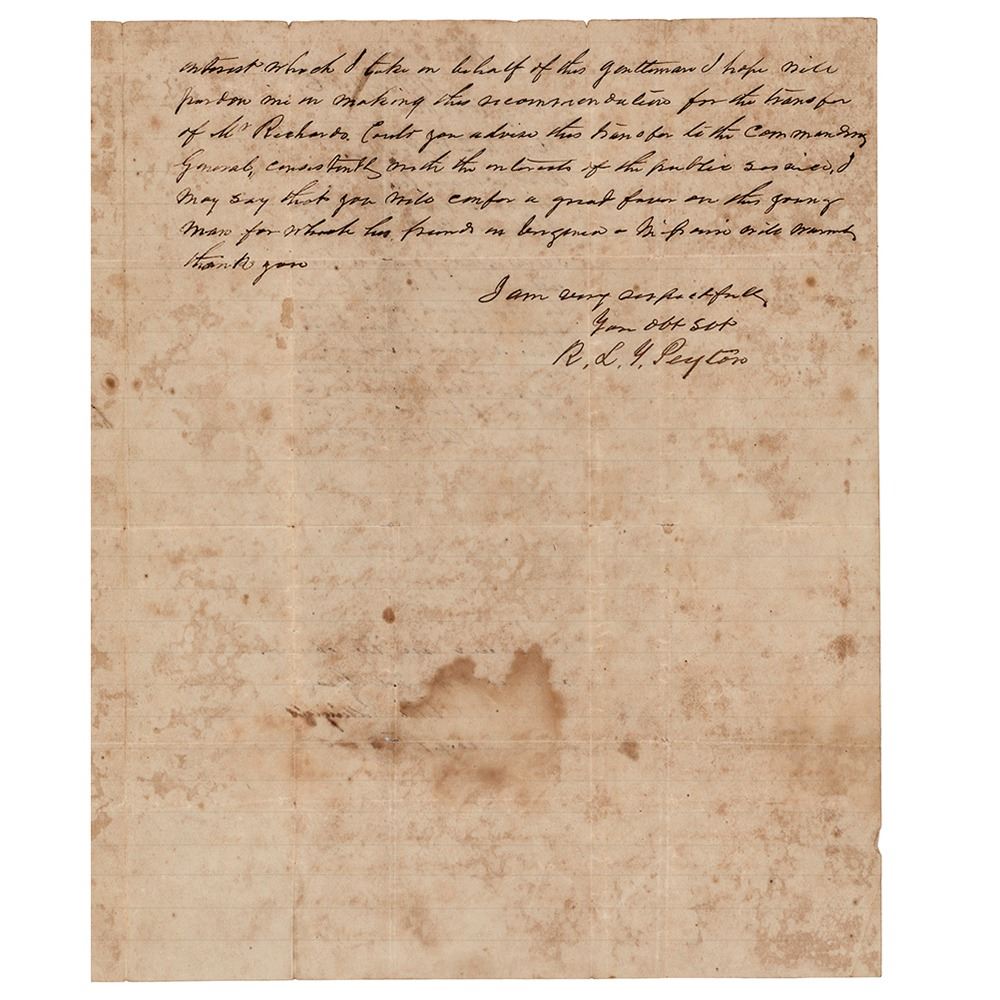 interest which I take in behalf of this gentleman I hope will
pardon me in making this recommendation for the transfer
of Mr Richards. Could you advise this transfer to the Commanding
General, consistently with the interests of the public service, I
may say that you will confer a great favor on this young
man for which his friends in Virginia & Missouri will warmly
thank you
I am very respectfully
Your obt svt
R. L. Y. Peyton